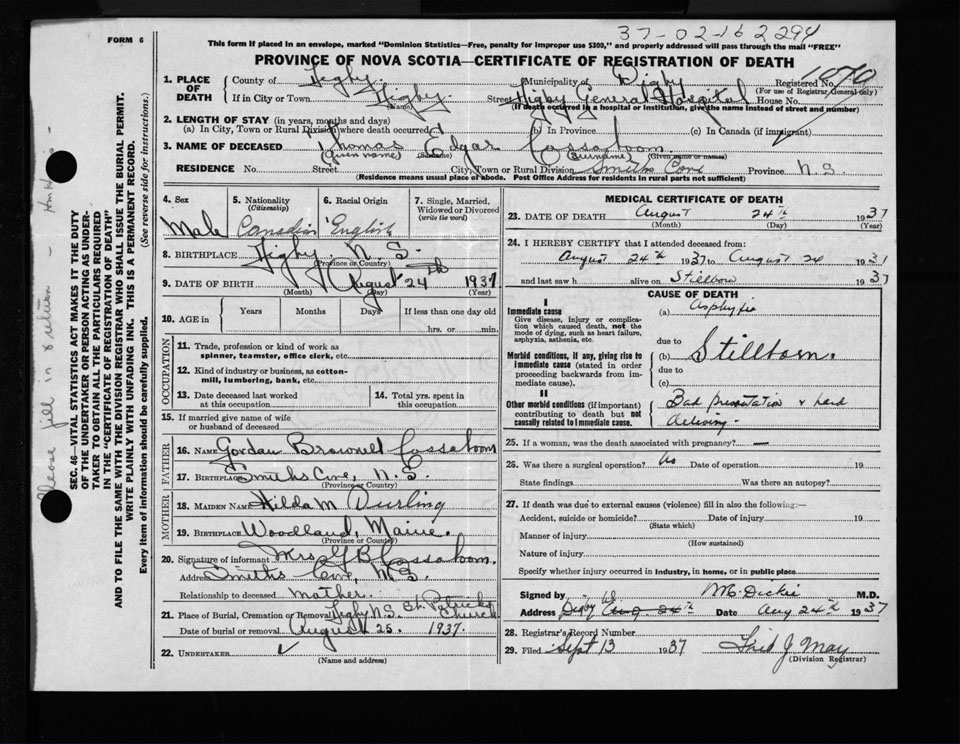 37-02-162294
FORM 6
This form if placed in an envelope, marked "Dominion Statistics—Free, penalty for improper use $300," and properly addressed will pass through the mail "FREE"
PROVINCE OF NOVA SCOTIA—CERTIFICATE OF REGISTRATION OF DEATH
1. PLACE OF DEATH County of Digby Municipality of Digby Registered No. 1070
(For use of Registrar General only)
If in City or Town Digby (Name) Street Digby General Hospital House No.
(If death occurred in a hospital or institution, give the name instead of street and number)
2. LENGTH OF STAY (in years, months and days)
(a) In City, Town or Rural Division where death occurred (b) In Province (c) In Canada (if immigrant)
3. NAME OF DECEASED Thomas Edgar Cossaboom
(Given name) (Surname) (Surname) (Given name or names)
RESIDENCE No. Street City, Town or Rural Division Smiths Cove Province N.S.
(Residence means usual place of abode. Post Office Address for residents in rural parts not sufficient)
4. Sex Male
5. Nationality (Citizenship) Canadian
6. Racial Origin English
7. Single, Married, Widowed or Divorced (write the word)
8. BIRTHPLACE Digby, N.S.
(Province or Country)
9. DATE OF BIRTH August 24th 1937
(Month) (Day) (Year)
10. AGE in Years Months Days If less than one day old
hrs. or min.
OCCUPATION
11. Trade, profession or kind of work as spinner, teamster, office clerk, etc.
12. Kind of industry or business, as cotton-mill, lumbering, bank, etc.
13. Date deceased last worked at this occupation
14. Total yrs. spent in this occupation
15. If married give name of wife or husband of deceased
FATHER
16. NAME Gordan Brownell Cossaboom
17. BIRTHPLACE Smiths Cove, N.S.
(Province or Country)
MOTHER
18. MAIDEN NAME Hilda M Durling
19. BIRTHPLACE Woodland, Maine.
(Province or Country)
20. Signature of informant Mrs. G B Cossaboom.
Address Smiths Cove, N.S.
Relationship to deceased mother.
21. Place of Burial, Cremation or Removal Digby N.S. St. Patricks Church
Date of burial or removal August 25. 1937.
22. UNDERTAKER ✓
(Name and address)
MEDICAL CERTIFICATE OF DEATH
23. DATE OF DEATH August 24th 1937
(Month) (Day) (Year)
24. I HEREBY CERTIFY that I attended deceased from:
August 24th 1937 to August 24 1937
and last saw h alive on Stillborn 1937
CAUSE OF DEATH
I
Immediate cause (a) Asphyxia
Give disease, injury or complication which caused death, not the mode of dying, such as heart failure, asphyxia, asthenia, etc.
due to
Morbid conditions, if any, giving rise to immediate cause (stated in order proceeding backwards from immediate cause).
(b) Stillborn.
due to
(c)
II
Other morbid conditions (if important) contributing to death but not causally related to immediate cause.
Bad presentation & hard
25. If a woman, was the death associated with pregnancy? —
26. Was there a surgical operation? No Date of operation 19
State findings Was there an autopsy?
27. If death was due to external causes (violence) fill in also the following:—
Accident, suicide or homicide? Date of injury 19
(State which)
Manner of injury
(How sustained)
Nature of injury
Specify whether injury occurred in industry, in home, or in public place
Signed by M. Dickie M.D.
Address Digby Aug. 24th Date Aug 24th 1937
28. Registrar's Record Number
29. Filed Sept 13 1937 Fred J May
(Division Registrar)
Please fill in & return
SEC. 46—VITAL STATISTICS ACT MAKES IT THE DUTY OF THE UNDERTAKER OR PERSON ACTING AS UNDERTAKER TO OBTAIN ALL THE PARTICULARS REQUIRED IN THE "CERTIFICATE OF REGISTRATION OF DEATH" AND TO FILE THE SAME WITH THE DIVISION REGISTRAR WHO SHALL ISSUE THE BURIAL PERMIT.
WRITE PLAINLY WITH UNFADING INK. THIS IS A PERMANENT RECORD.
Every item of information should be carefully supplied. (See reverse side for instructions.)